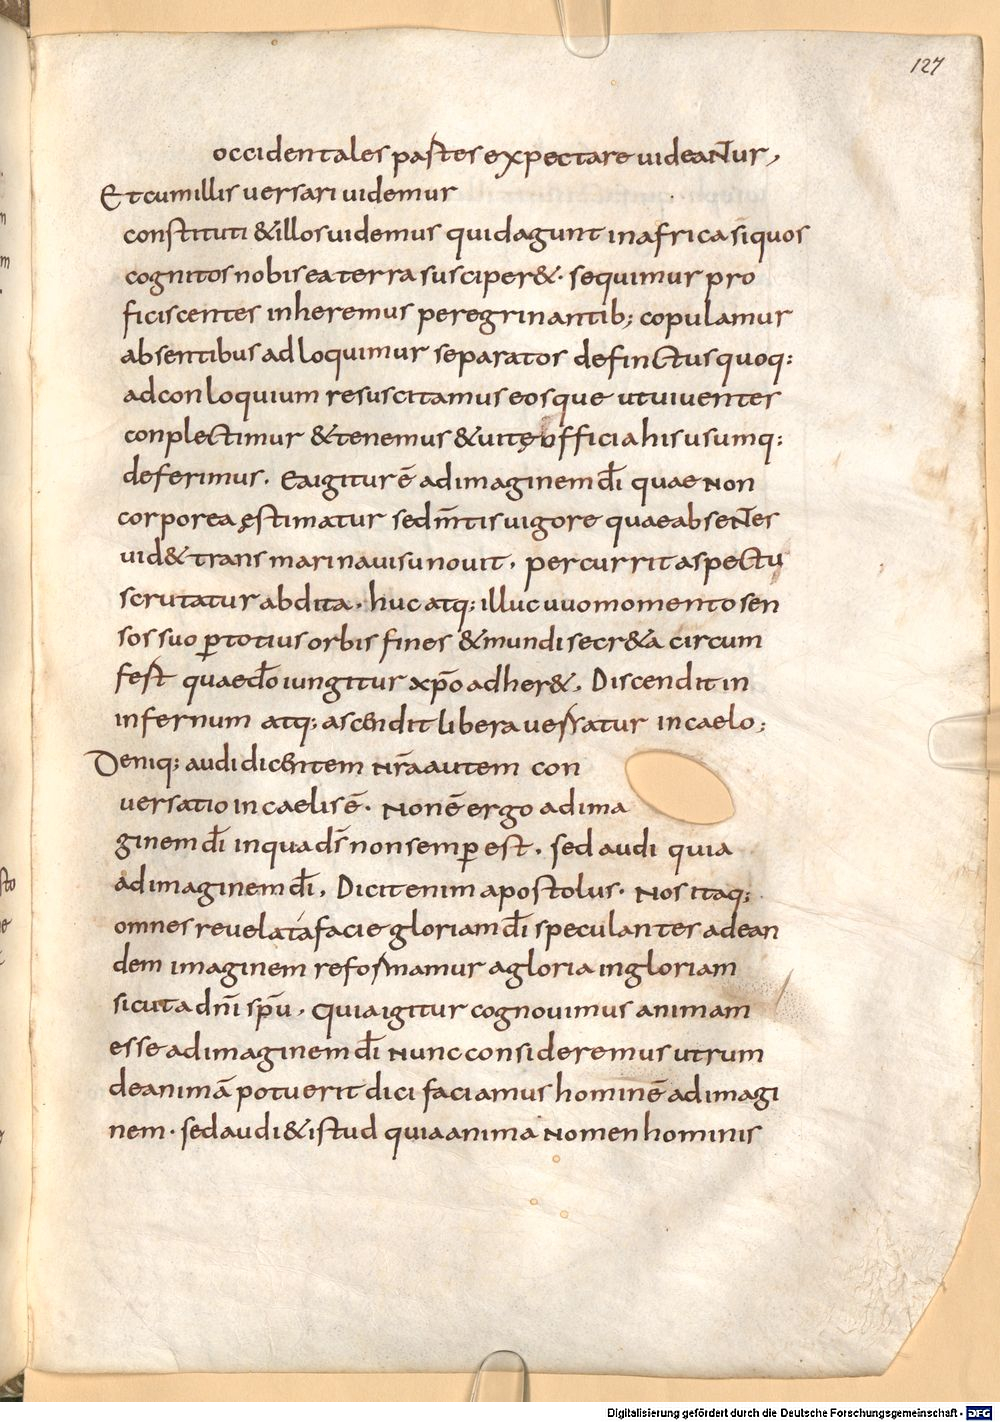 127
occidentales partes expectare uideaNtur,
Et cum illis uersari uidemur
constituti & illos uidemus qui dagunt in africa siquos
cognitos nobis ea terra susciper&. sequimur pro
ficiscentes inheremus peregrinantib; copulamur
absentibus adloquimur separatos definctus quoq:
ad conloquium resuscitamus eosque ut uiuentes
conplectimur & tenemus & uitę officia his usumq:
deferimus. Ea igitur ē ad imaginem dī quae non
corporea ęstimatur sed m̄tis uigore quae abseNtes
uid& transmarina uisu nouit. percurrit aspectu
scrutatur abdita. huc atq: illuc uuo momento sen
sos suo ꝑ totius orbis fines & mundi secr&a circum
fest quae dō iungitur xp̄o adher&. Discendit in
infernum atq; ascendit libera uersatur in caelo;
Deniq: audi dicentem nr̄a autem con
uersatio in caelis ē. Non ē ergo ad ima
ginem dī in qua ds̄ non semꝑ est. sed audi quia
ad imaginem dī. Dicit enim apostolus. Nos itaq;
omnes reuelata facie gloriam dī speculantes ad ean
dem imaginem reformamur a gloria in gloriam
sicut a dnī spū. Quia igitur cognouimus animam
esse ad imaginem dī nunc consideremus utrum
de animā potuerit dici faciamus hominē ad imagi
nem. sed audi & istud quia anima nomen hominis
Digitalisierung gefördert durch die Deutsche Forschungsgemeinschaft - DFG